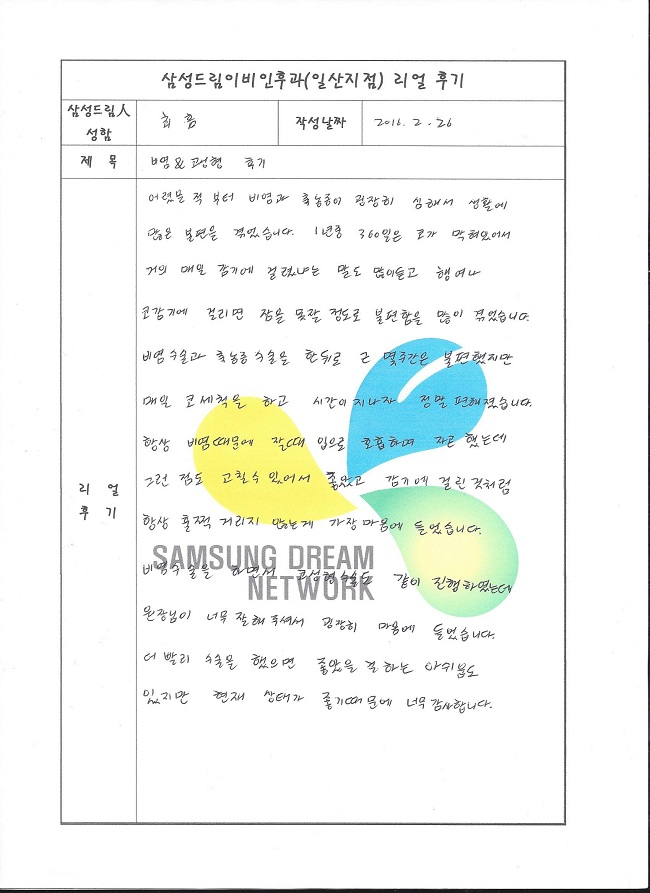 삼성드림이비인후과(일산지점) 리얼 후기
삼성드림人 성함 최 홈 작성날짜 2016. 2. 26
제 목 비염 & 코성형 후기
리 얼 후 기
어렸을 적 부터 비염과 축농증이 굉장히 심해서 생활에
많은 불편을 겪었습니다. 1년중 360일은 코가 막혀있어서
거의 매일 감기에 걸렸냐는 말도 많이듣고 행여나
코감기에 걸리면 잠을 못잘 정도로 불편함을 많이 겪었습니다.
비염수술과 축농증 수술을 한뒤로 근 몇주간은 불편했지만
매일 코세척을 하고 시간이 지나자 정말 편해졌습니다.
항상 비염때문에 잘때 입으로 호흡하며 자곤 했는데
그런 점도 고칠수 있어서 좋았고 감기에 걸린 것처럼
항상 훌쩍 거리지 않는게 가장 마음에 들었습니다.
비염수술을 하면서 코성형수술도 같이 진행하였는데
원장님이 너무 잘해주셔서 굉장히 마음에 들었습니다.
더 빨리 수술을 했으면 좋았을 걸 하는 아쉬움도
있지만 현재 상태가 좋기때문에 너무 감사합니다.
SAMSUNG DREAM
NETWORK